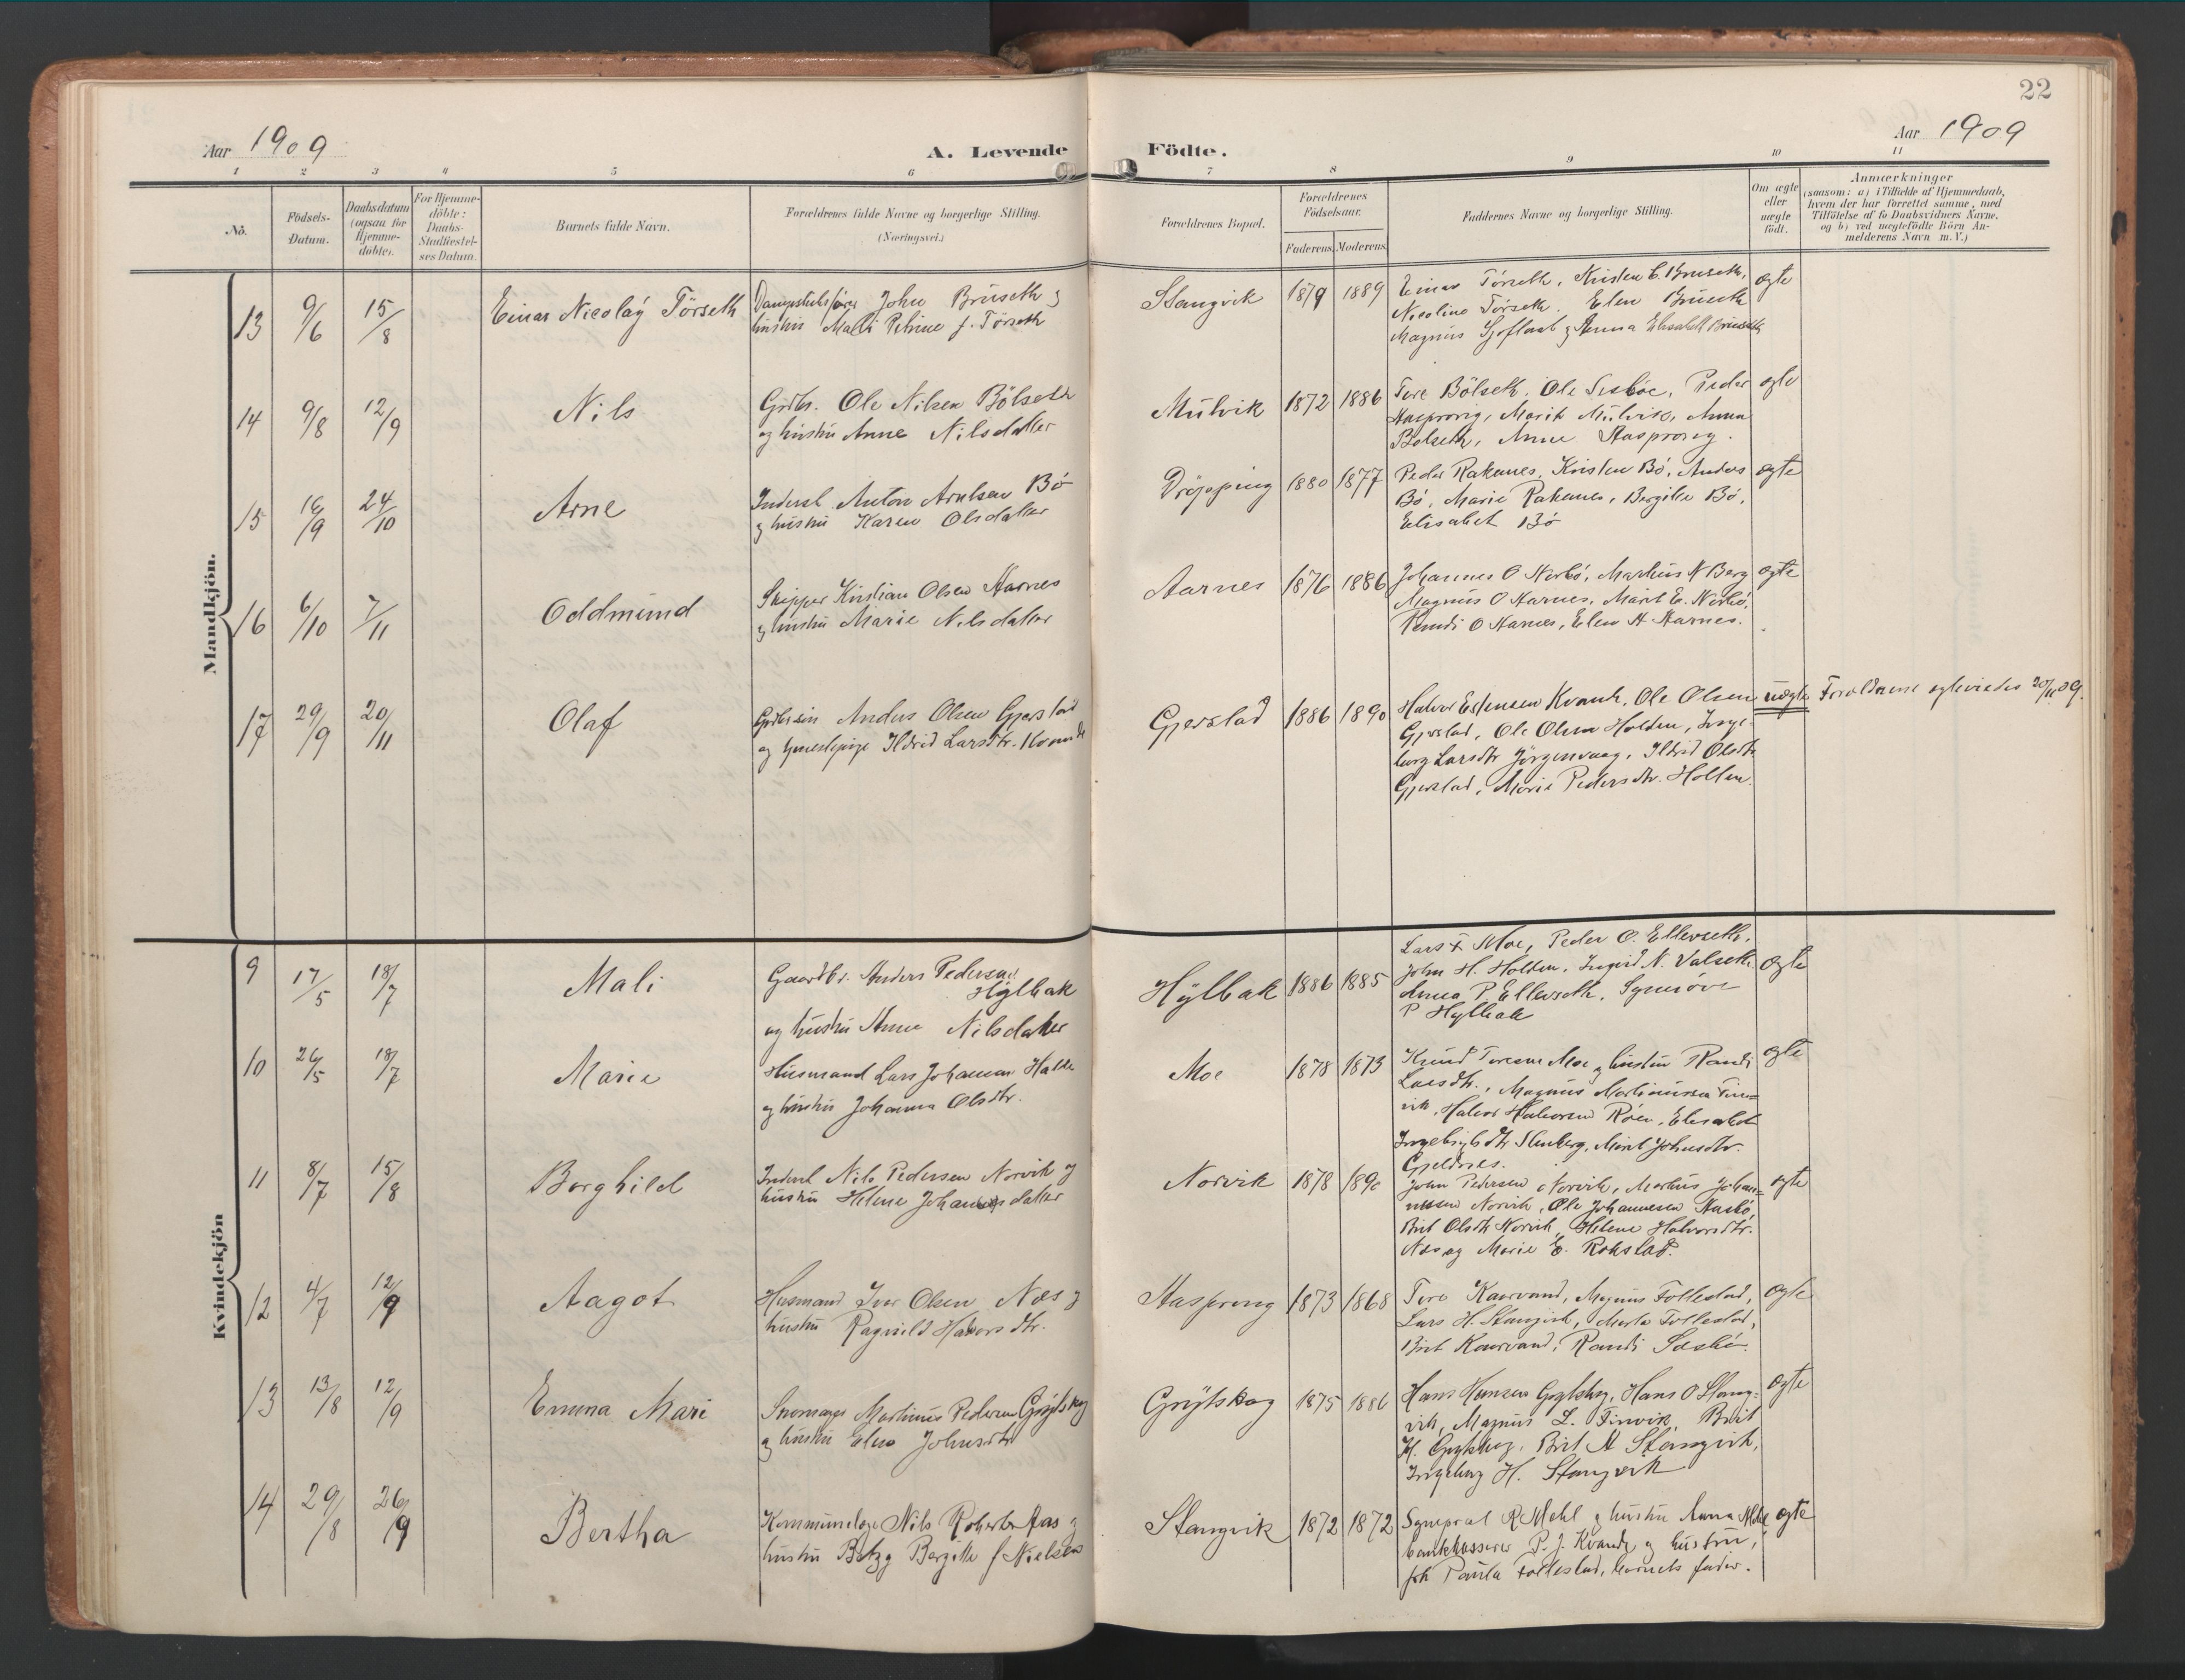 22
Aar 1909
A. Levende Födte.
Aar 1909
1 2 3 4 5 6 7 8 9 10 11
No.
Födsels-
Datum.
Daabsdatum
(ogsaa for
Hjemme-
döbte).
For Hjemme-
döbte:
Daabs-
Stadfæstel-
ses Datum.
Barnets fulde Navn.
Forældrenes fulde Navne og borgerlige Stilling.
(Næringsvei.)
Forældrenes Bopæl.
Forældrenes
Födselsaar.
Faderens. Moderens.
Faddernes Navne og borgerlige Stilling.
Om ægte
eller
uægte
födt.
Anmærkninger
(saasom: a) i Tilfælde af Hjemmedaab,
hvem der har forrettet samme, med
Tilföielse af to Daabsvidners Navne,
og b) ved uægtefödte Börn An-
melderens Navn m. V.)
Mandkjön.
13 9/6 15/8 Einar Nicolaÿ Törseth
John Brüseth
hustru Malli Petrine f. Törseth
Stangvik 1879 1889
Einar Törseth, Kristen C. Bruseth,
Nicoline Törseth. Elen Brüseth
Magnus & Anna Elisabeth Brüseth
ægte
14 9/8 12/9 Nils
Gdbr. Ole Nilsen Bölseth
og hustru Anne Nilsdatter
Mulvik 1872 1886
Tore Bölseth, Ole Sæsböe, Peder
Aasprong, Marit Mulvik, Anna
Bolseth, Anne Aasprong.
ægte
15 16/9 24/10 Arne
Inderst Anton Arntsen Bö
& hustru Karen Olsdatter
Dröpping 1880 1877
Peder Rakenes, Kristen Bö, Anders
Bö, Marie Rakenes, Bergitte Bö,
Elisabet Bö
ægte
16 6/10 7/11 Oddmund
Skipper Kristian Olsen Aarnes
& hustru Marie Nilsdatter
Aarnes 1876 1886
Johannes O Nerbö, Martinus N Berg
Magnus O Aarnes, Marit E. Nerbö,
Randi O Aarnes, Elen A Aarnes.
ægte
17 29/9 20/11 Olaf
Gdbrsön Anders Olsen Gjerstad
og Ildrid Larsdtr. Kvande
Gjerstad 1886 1890
Halvor Estensen Kvande, Ole Olsen
Gjerstad, Ole Olsen Holden, Inge-
borg Larsdtr Jörgenvaag, Ildrid Olsdtr
Gjerstad, Marie Pedersdtr. Holten
uægte
Forældrene egteviedes 20/11 09.
Kvindekjön
9 17/5 18/7 Mali
Gaardbr. Anders Pedersen
Hÿlbak
og hustru Anne Nilsdatter
Hÿlbak 1886 1885
Lars F Moe, Peder O. Ellevseth,
John H. Holden, Ingrid N. Valseth
Anna P Ellevseth, Synnöve
P Hylbak
ægte
10 26/5 18/7 Marie
Husmand Lars Johansen Halde
og hustru Johanna Olsdtr.
Moe 1878 1873
Knud Toresen Moe & hustru Randi
Larsdtr., Magnus Martinussen Tin-
vik, Halvor Halvorsen Röen, Elisabet
Ingebrigtsdtr Stenberg, Marit Johnsdtr.
Gjeldnes.
ægte
11 8/7 15/8 Borghild
Inderst Nils Pedersen Norvik &
hustru Helene Johannesdatter
Norvik 1878 1890
John Pedersen Norvik, Martius Johan-
nessen Norvik, Ole Johannesen Aasbö,
Brit Olsdtr Norvik, Helene Halvorsdtr.
Næs og Marie E. Rokstad.
ægte
12 4/7 12/9 Aagot
Husmand Iver Olsen Næs &
hustru Ragnild Halvorsdtr.
Aasprong 1873 1868
Tore Kaarvand, Magnus Follestad,
Lars H. Stangvik, Marta Follestad,
Brit Kaarvand, Randi Sæsbö.
ægte
13 13/8 12/9 Emma Mari
Martinus Pedersen Grÿtskog
& hustru Elen Johnsdtr
Grÿtskog 1875 1886
Hans Hansen Grytskog, Hans O Stang-
vik, Magnus L. Tinvik, Brit
H. Grytskog, Brit A Stangvik,
Ingeborg H. Stangvik
ægte
14 29/8 26/9 Bertha
Kommunelæge Nils Aas &
hustru Betzy Bergitte f Nielsen
Stangvik 1872 1872
R Mehl & hustru Anna Mehl
bankkasserer P. J. Kvande & hustru,
frk Paula Follestad, barnets fader.
ægte